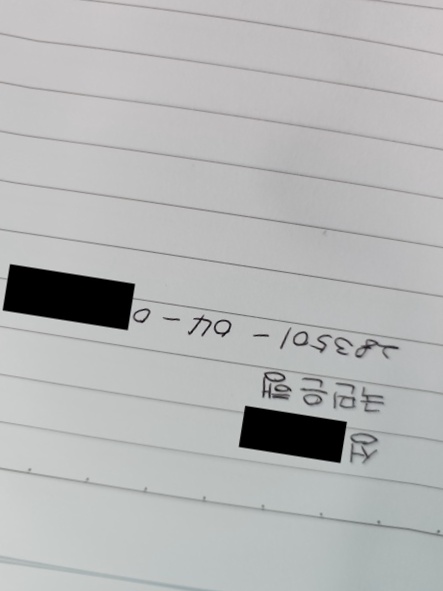 정
국민은행
283501 - 04 - 0